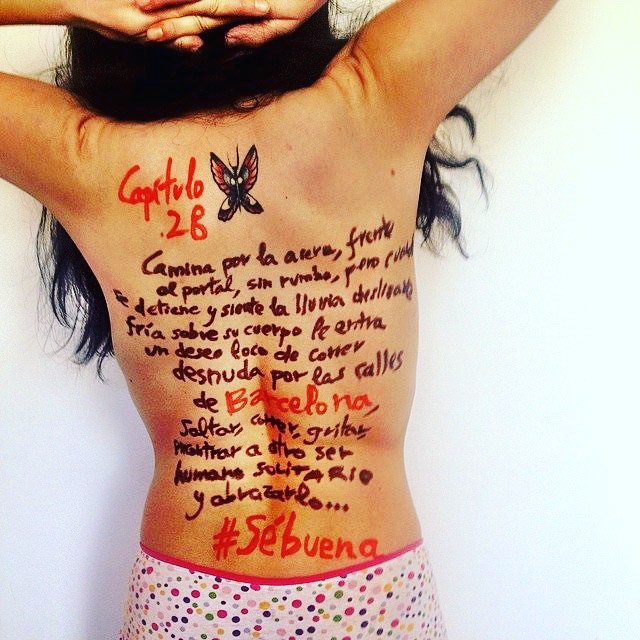 Capítulo
.28
Camina por la acera, frente
al portal, sin rumbo, pero cuando
se detiene y siente la lluvia deslizarse
fría sobre su cuerpo le entra
un deseo loco de correr
desnuda por las calles
de Barcelona,
Saltar, correr, gritar,
encontrar a otro ser
humano solitARIO
y abrazarlo...
#Sébuena